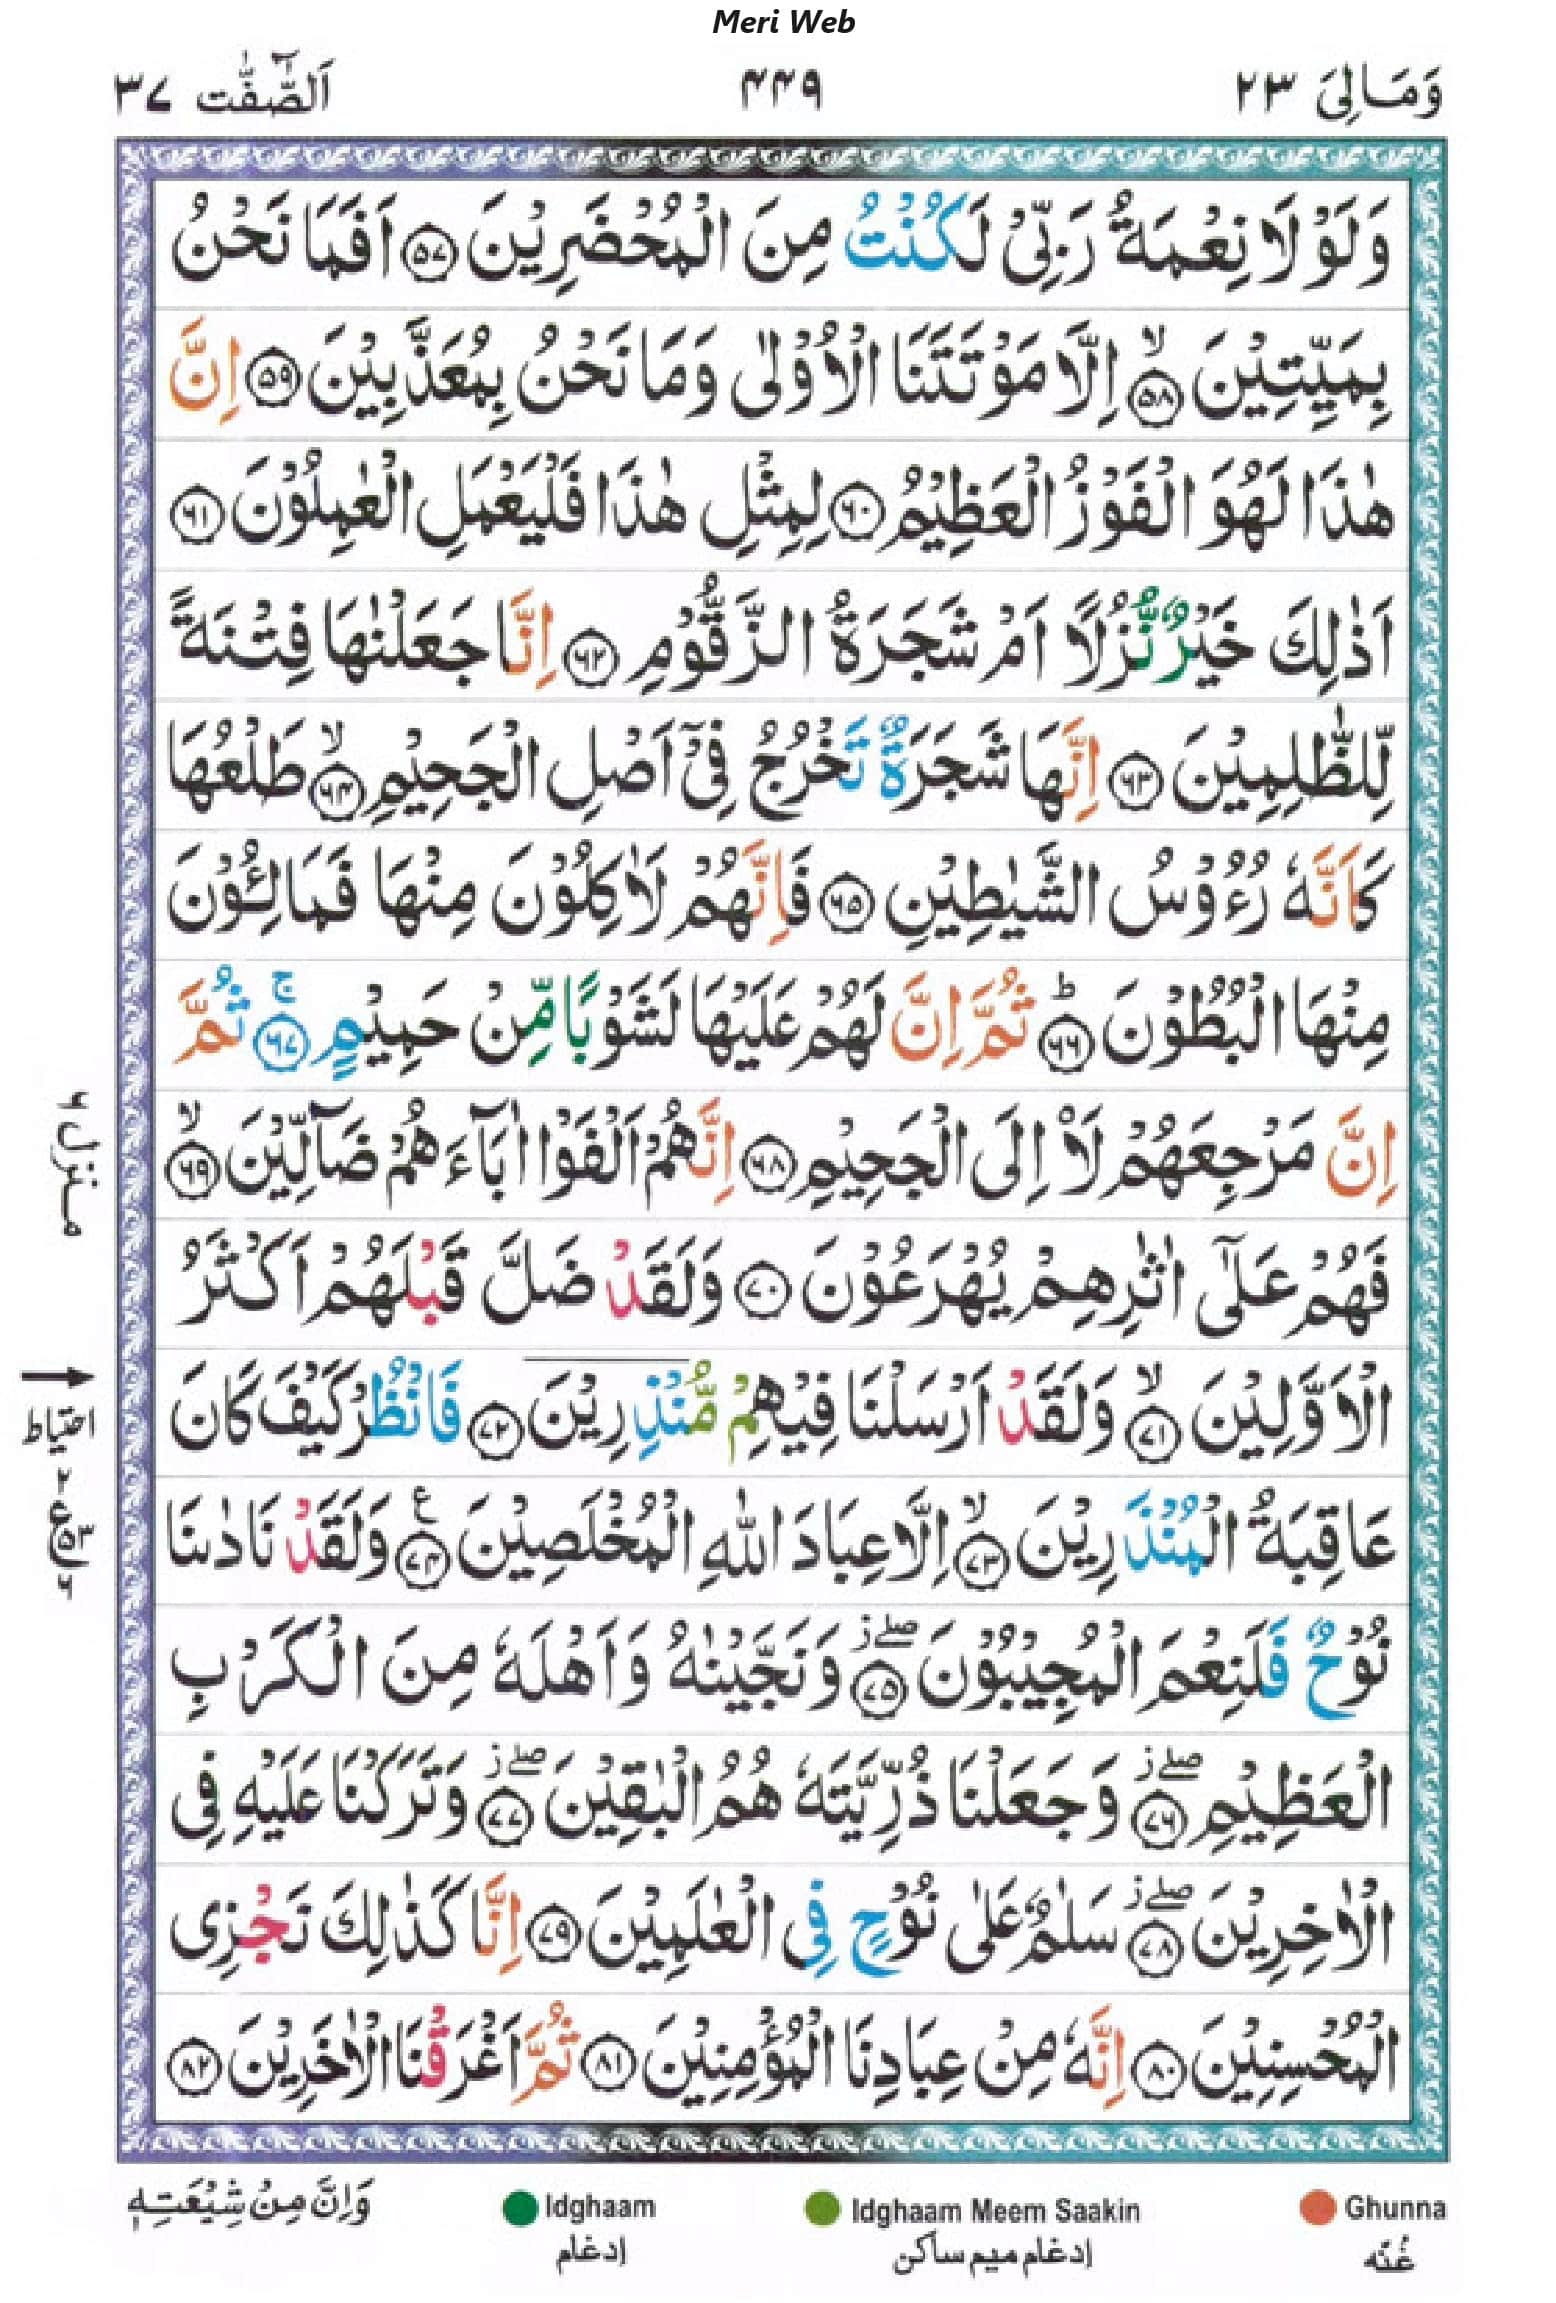 Meri Web
وَمَالِیَ ۲۳
۴۴۹
اَلصّٰٓفّٰت ۳۷
وَلَوْلَا نِعْمَةُ رَبِّیْ لَكُنْتُ مِنَ الْمُحْضَرِیْنَ ﴿۵۷﴾ اَفَمَا نَحْنُ
بِمَیِّتِیْنَ ﴿۵۸﴾ۙ اِلَّا مَوْتَتَنَا الْاُوْلٰی وَمَا نَحْنُ بِمُعَذَّبِیْنَ ﴿۵۹﴾ اِنَّ
هٰذَا لَهُوَ الْفَوْزُ الْعَظِیْمُ ﴿۶۰﴾ لِمِثْلِ هٰذَا فَلْیَعْمَلِ الْعٰمِلُوْنَ ﴿۶۱﴾
اَذٰلِكَ خَیْرٌ نُّزُلًا اَمْ شَجَرَةُ الزَّقُّوْمِ ﴿۶۲﴾ اِنَّا جَعَلْنٰهَا فِتْنَةً
لِّلظّٰلِمِیْنَ ﴿۶۳﴾ اِنَّهَا شَجَرَةٌ تَخْرُجُ فِیْۤ اَصْلِ الْجَحِیْمِ ﴿۶۴﴾ۙ طَلْعُهَا
كَاَنَّهٗ رُءُوْسُ الشَّیٰطِیْنِ ﴿۶۵﴾ فَاِنَّهُمْ لَاٰكِلُوْنَ مِنْهَا فَمَالِـُٔوْنَ
مِنْهَا الْبُطُوْنَ ﴿۶۶﴾ؕ ثُمَّ اِنَّ لَهُمْ عَلَیْهَا لَشَوْبًا مِّنْ حَمِیْمٍ ﴿۶۷﴾ۚ ثُمَّ
اِنَّ مَرْجِعَهُمْ لَا۠ اِلَی الْجَحِیْمِ ﴿۶۸﴾ اِنَّهُمْ اَلْفَوْا اٰبَآءَهُمْ ضَآلِّیْنَ ﴿۶۹﴾ۙ
فَهُمْ عَلٰۤی اٰثٰرِهِمْ یُهْرَعُوْنَ ﴿۷۰﴾ وَلَقَدْ ضَلَّ قَبْلَهُمْ اَكْثَرُ
الْاَوَّلِیْنَ ﴿۷۱﴾ۙ وَلَقَدْ اَرْسَلْنَا فِیْهِمْ مُّنْذِرِیْنَ ﴿۷۲﴾ فَانْظُرْ كَیْفَ كَانَ
عَاقِبَةُ الْمُنْذَرِیْنَ ﴿۷۳﴾ۙ اِلَّا عِبَادَ اللّٰهِ الْمُخْلَصِیْنَ ﴿۷۴﴾ع وَلَقَدْ نَادٰىنَا
نُوْحٌ فَلَنِعْمَ الْمُجِیْبُوْنَ ﴿۷۵﴾ۖؗ وَنَجَّیْنٰهُ وَاَهْلَهٗ مِنَ الْكَرْبِ
الْعَظِیْمِ ﴿۷۶﴾ۖؗ وَجَعَلْنَا ذُرِّیَّتَهٗ هُمُ الْبٰقِیْنَ ﴿۷۷﴾ۖؗ وَتَرَكْنَا عَلَیْهِ فِی
الْاٰخِرِیْنَ ﴿۷۸﴾ۖؗ سَلٰمٌ عَلٰی نُوْحٍ فِی الْعٰلَمِیْنَ ﴿۷۹﴾ اِنَّا كَذٰلِكَ نَجْزِی
الْمُحْسِنِیْنَ ﴿۸۰﴾ اِنَّهٗ مِنْ عِبَادِنَا الْمُؤْمِنِیْنَ ﴿۸۱﴾ ثُمَّ اَغْرَقْنَا الْاٰخَرِیْنَ ﴿۸۲﴾
منزل ۶
احتیاط
۲
ع
۶
وَاِنَّ مِنْ شِیْعَتِهٖ
Idghaam
إدغام
Idghaam Meem Saakin
إدغام ميم ساكن
Ghunna
غُنّه